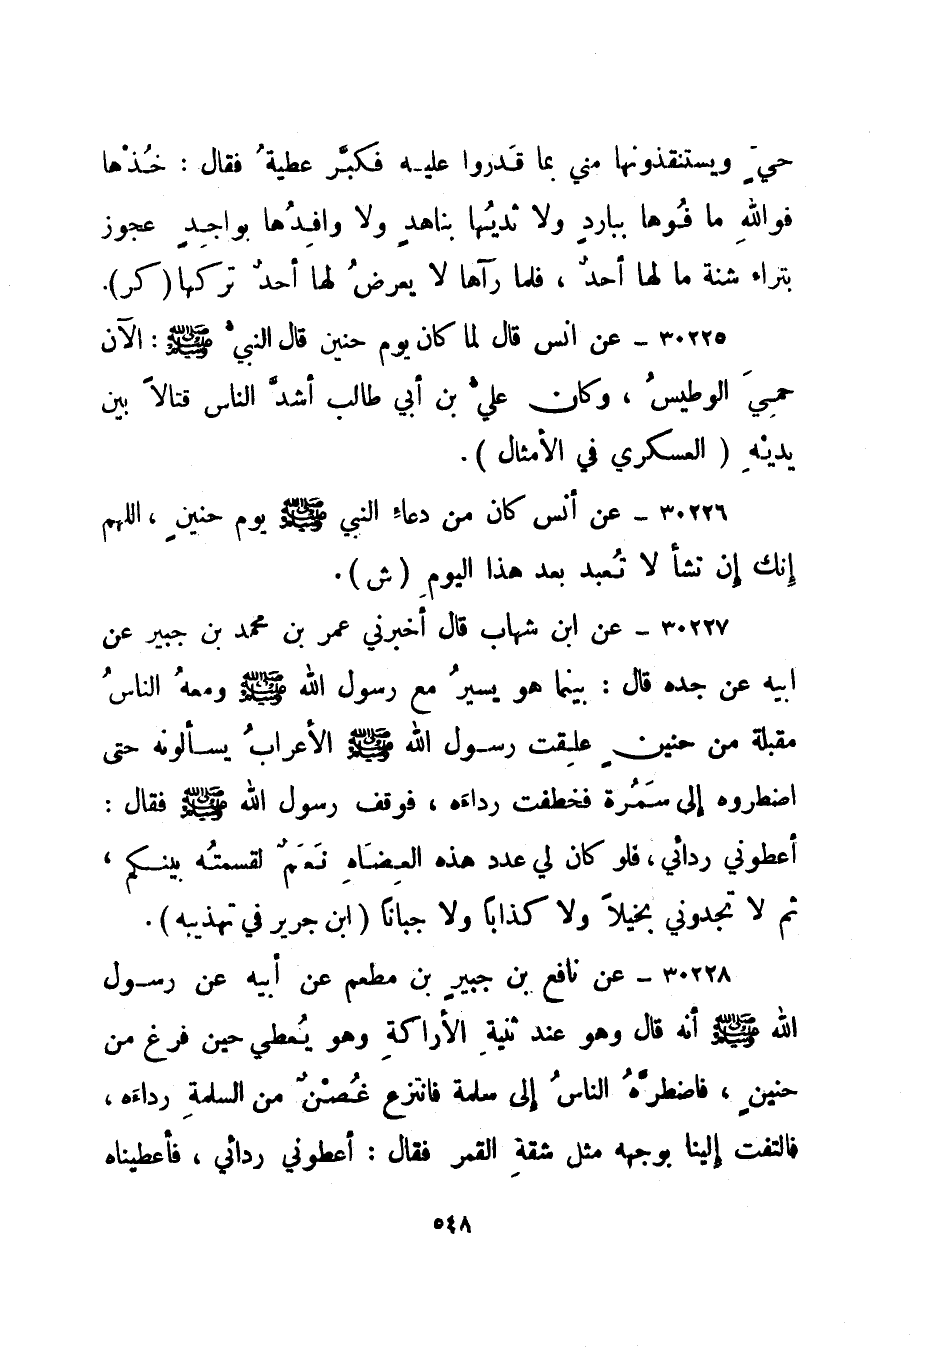 حيٍّ ويستنقذونها مني بما قَدروا عليه فكبَّر عطيةُ فقال : خُذْها
فواللهِ ما فُوها بباردٍ ولا ثديُها بناهدٍ ولا وافِدُها بواجِدٍ عجوز
بتراء شنة ما لها أحدٌ ، فلما رآها لا يعرضُ لها أحدٌ تركها (كر).
٣٠٢٢٥ ـ عن انس قال لما كان يوم حنين قال النبيُّ ﷺ : الآن
حميَ الوطيسُ ، وكان عليُّ بن أبي طالب أشدَّ الناس قتالاً بين
يديْهِ ( العسكري في الأمثال ).
٣٠٢٢٦ ـ عن أنس كان من دعاء النبي ﷺ يوم حنينٍ ، اللهم
إنك إن تشأ لا تُعبد بعد هذا اليومِ ( ش ).
٣٠٢٢٧ ـ عن ابن شهاب قال أخبرني عمر بن محمد بن جبير عن
ابيه عن جده قال : بينما هو يسيرُ مع رسول الله ﷺ ومعهُ الناسُ
مقبلة من حنينٍ علِقت رسول الله ﷺ الأعرابُ يسألونه حتى
اضطروه إلى سَمُرة فخطفت رداءَه ، فوقف رسول الله ﷺ فقال :
أعطوني ردائي ، فلو كان لي عدد هذه العِضَاهِ نَعَمٌ لقسمتُه بينكم ،
ثم لا تجدوني بخيلاً ولا كذاباً ولا جباناً ( ابن جرير في تهذيبه ).
٣٠٢٢٨ ـ عن نافع بن جبيرٍ بن مطعم عن أبيه عن رسول
الله ﷺ أنه قال وهو عند ثنيةِ الأراكةِ وهو يُعطي حين فرغ من
حنينٍ ، فاضطرَّهُ الناسُ إلى سلمة فانتزع غُصْنٌ من السلمةِ رداءَه ،
فالتفت إلينا بوجهه مثل شقةِ القمر فقال : أعطوني ردائي ، فأعطيناه
٥٤٨